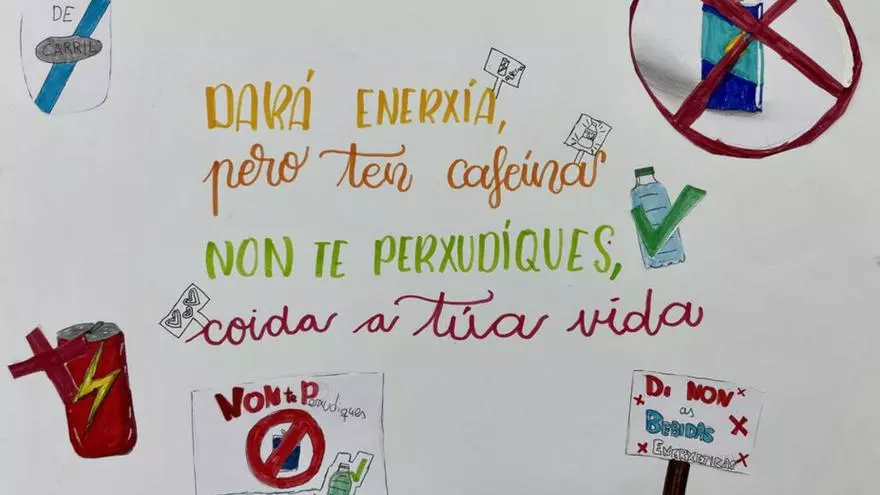 DE
CARRIL
DARÁ ENERXÍA,
pero ten cafeína
NON TE PERXUDÍQUES,
coida a túa vida
NON te Perxudiques
DI NON
as
BEBIDAS
ENERXETICAS